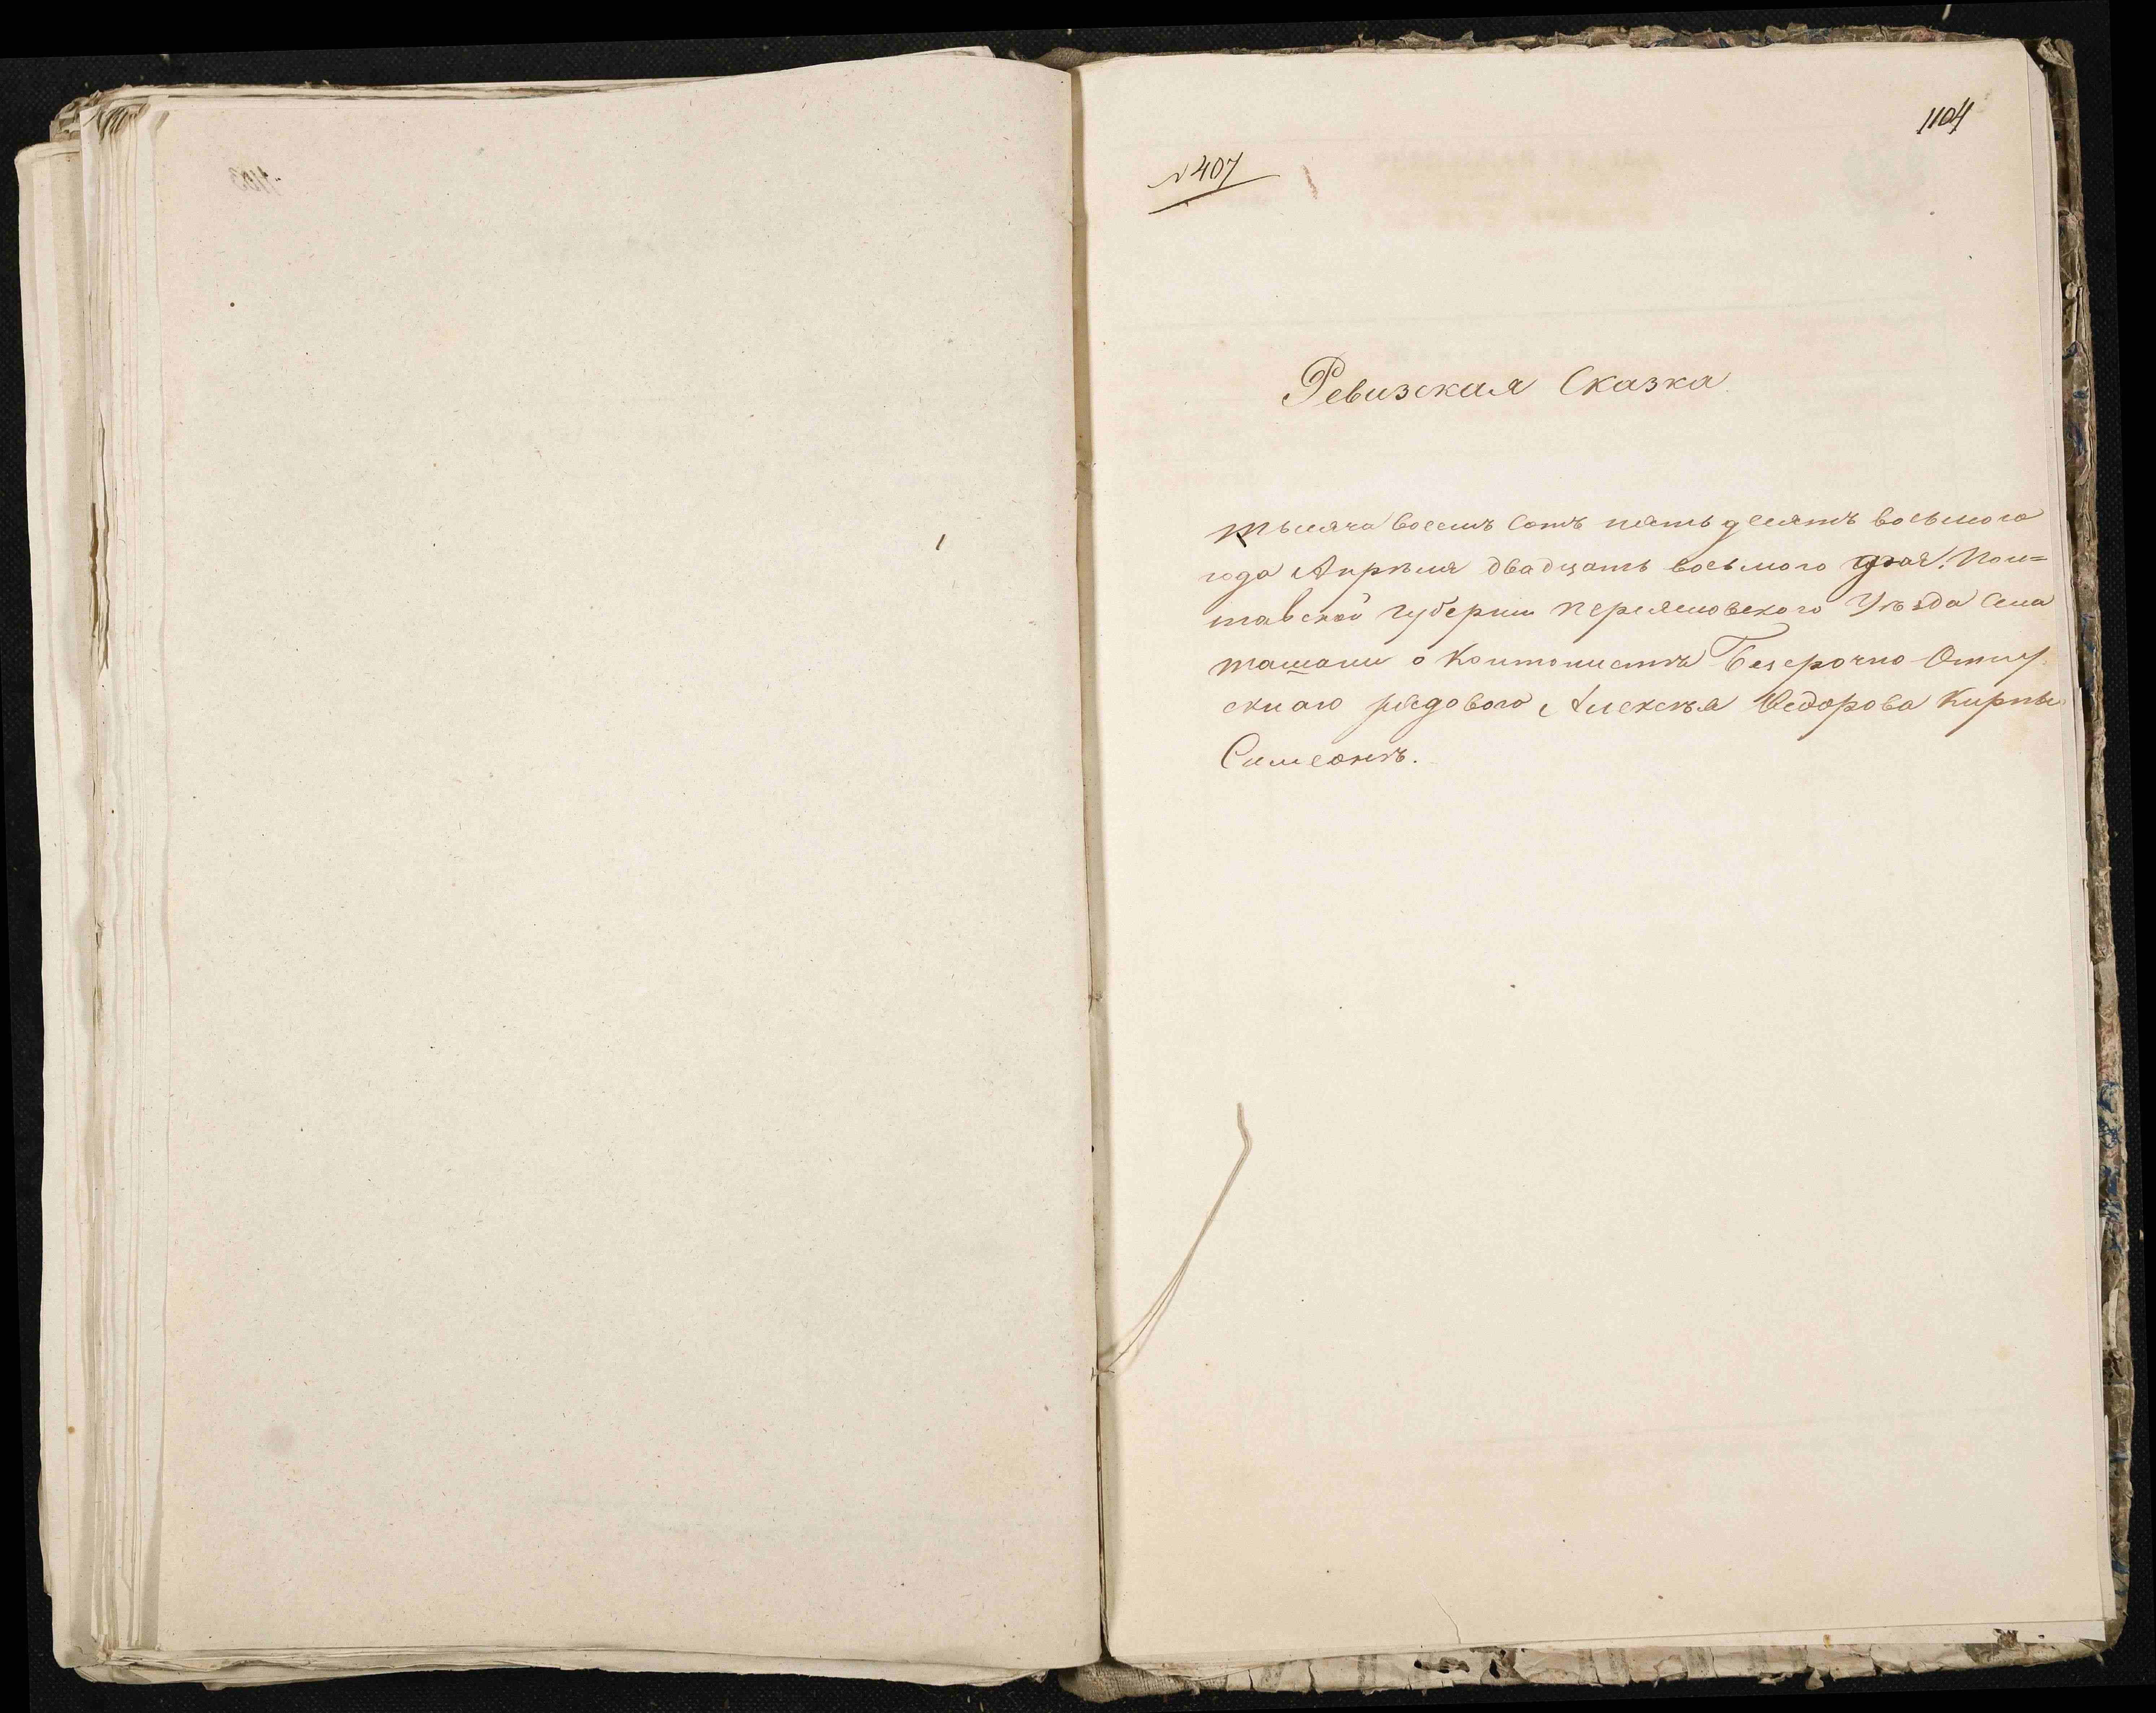 1104
№ 407
Ревизская Сказка
тысяча восемь сотъ пять десятъ восьмого
года Апрѣля двадцать восьмого дня. Пол=
тавской губернии переясловского Уѣзда села
ташани о Контонистѣ Безсрочно Отпу
скнаго рядового Алексѣя Федорова Кирпы
Симеонѣ.